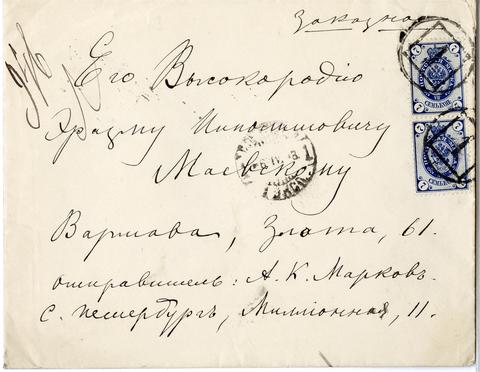 Заказное
Его Высокородію
Эразму
Маевскому
Варшава, Злота, 61.
отправитель: А. К. Марковъ.
С. Петербургъ, Милліонная, 11.
7 7
СЕМЬ КОП.
7 7
СЕМЬ КОП.